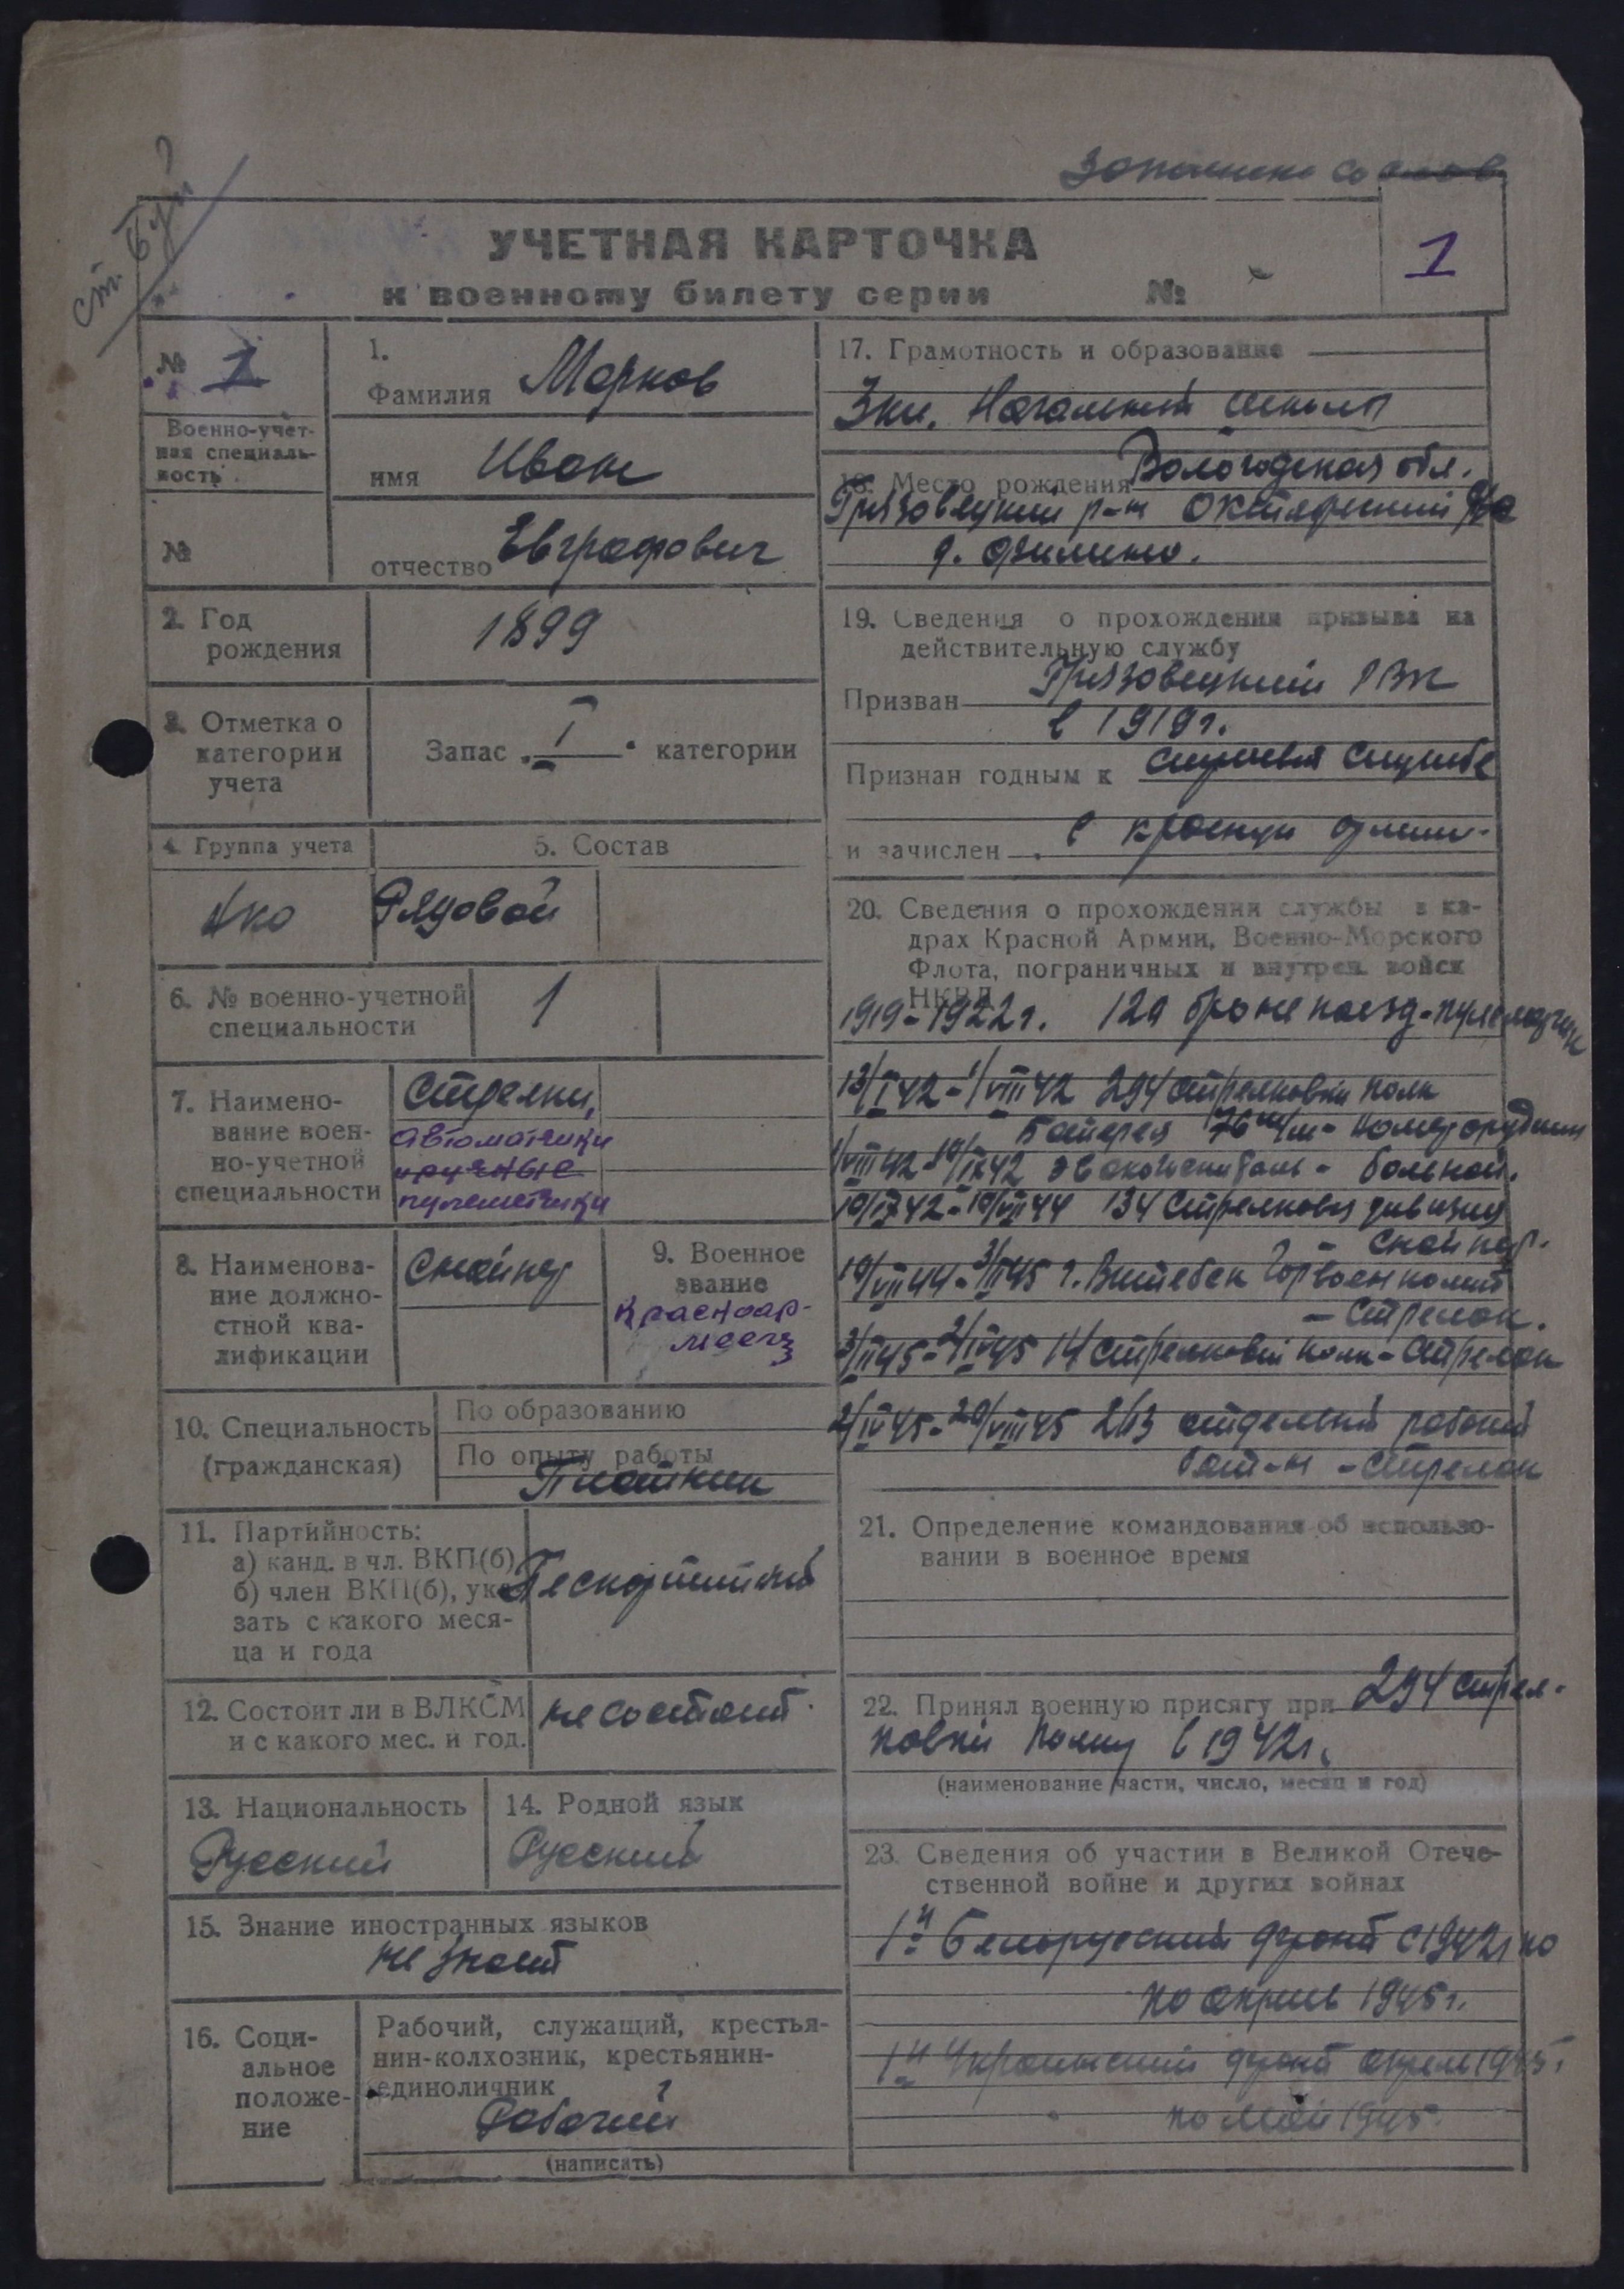 ст. Буй
Заполнено со слов
УЧЕТНАЯ КАРТОЧКА
к военному билету серии №
1
№ 1
Военно-учет-
ная специаль-
ность
№
1.
Фамилия Марков
имя Иван
отчество Евграфович
2. Год
рождения
1899
3. Отметка о
категории
учета
Запас I категории
4. Группа учета
5. Состав
Рядовой
6. № военно-учетной
специальности
1
7. Наимено-
вание воен-
но-учетной
специальности
Стрелки,
автоматчики
ручные
пулеметчики
8. Наименова-
ние должно-
стной ква-
лификации
Снайпер
9. Военное
звание
Красноар-
меец
10. Специальность
(гражданская)
По образованию
По опыту работы
Плотник
11. Партийность:
а) канд. в чл. ВКП(б)
б) член ВКП(б), ука
зать с какого меся-
ца и года
Беспартийный
12. Состоит ли в ВЛКСМ
и с какого мес. и год.
не состоит
13. Национальность
Русский
14. Родной язык
Русский
15. Знание иностранных языков
не знает
16. Соци-
альное
положе-
ние
Рабочий, служащий, крестья-
нин-колхозник, крестьянин-
единоличник
Рабочий
(написать)
17. Грамотность и образование
3 кл. Начальной школы
18. Место рождения Вологодская обл.
Грязовецкий р-н Октябрьский с/с
19. Сведения о прохождении призыва на
действительную службу
Призван Грязовецкий РВК
в 1919г.
Признан годным к строевой службе
и зачислен в красную армию
20. Сведения о прохождении службы в ка-
драх Красной Армии, Военно-Морского
Флота, пограничных и внутрен. войск
НКВД
1919-1922г. бронепоезд-пулеметчик
13/I 42-1/VIII 42 294 стрелковый полк
Батарея 76 м/м - номер орудия
1/VIII 42-19/IX 42 эвакогоспиталь - больной.
19/IX 42-19/VII 44 134 Стрелковая дивизия
- снайпер.
19/VII 44-3/II 45 г. Витебск Горвоенкомат
- Стрелок.
3/II 45-2/IV 45 14 стрелковый полк - Стрелок
2/IV 45-20/VIII 45 отдельный рабочий
бат-н - стрелок
21. Определение командования об использо-
вании в военное время
22. Принял военную присягу при 294 стрел-
ковый полку в 1942г.
(наименование части, число, месяц и год)
23. Сведения об участии в Великой Отече-
ственной войне и других войнах
1й Белорусский фронт с 1942г по
по апрель 1945г.
1й Украинский фронт апрель 1945г
по Май 1945